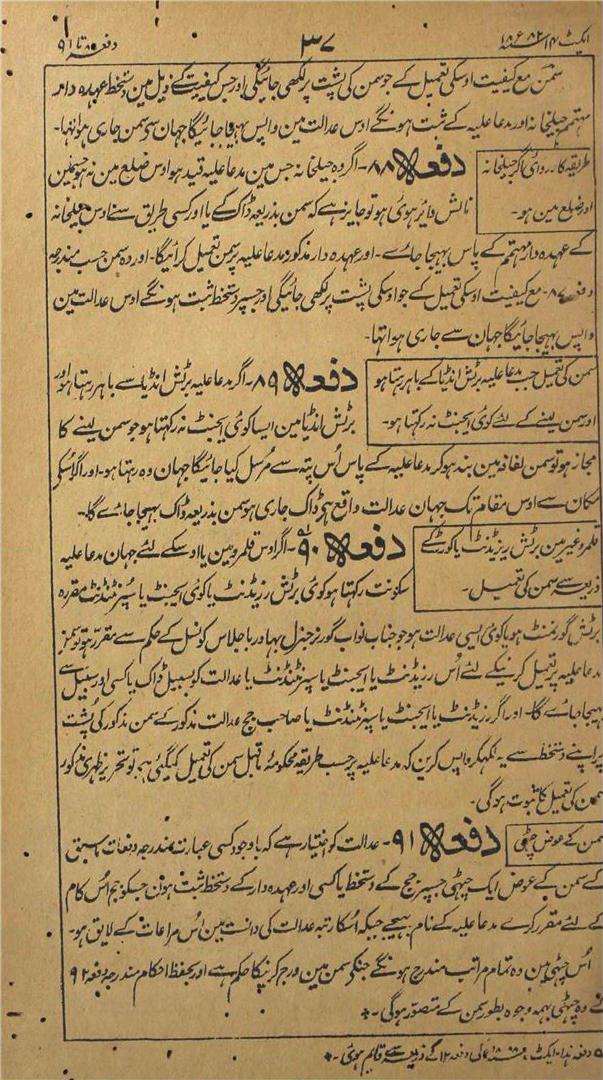 ایکٹ ۱۴ سنہ ۱۸۸۲ء
۳۷
دفعہ ۸۸ تا ۹۱
سمن مع کیفیت اوسکی تعمیل کے جو سمن کی پشت پر لکھی جائیگی اور جس کیفیت کے ذیل مین دستخط عہدہ دار
مہتمم جیلخانہ اور مدعا علیہ کے ثبت ہونگے اوس عدالت مین واپس بہیجا جائیگا جہان سی سمن جاری ہوا تہا۔
طریقہ کارروائی اگر جیلخانہ
اور ضلع مین ہو۔
دفعہ ۸۸۔ اگر وہ جیلخانہ جس مین مدعا علیہ قید ہو اوس ضلع مین نہو جسمین
نالش دائر ہوئی ہو تو جایز ہے کہ سمن بذریعہ ڈاک کے یا اور کسی طریق سے اوس جیلخانہ
کے عہدہ دار مہتمم کے پاس بہیجا جاے۔ اور عہدہ دار مذکور مدعا علیہ پر سمن تعمیل کرائیگا۔ اور وہ سمن حسب مندرجہ
دفعہ ۸۷۔ مع کیفیت اوسکی تعمیل کے جو اوسکی پشت پر لکھی جائیگی اور جسپر دستخط ثبت ہونگے اوس عدالت مین
واپس بہیجا جائیگا جہان سے جاری ہوا تہا۔
سمن کی تعمیل جب مدعا علیہ برٹش انڈیا کے باہر رہتا ہو
اور سمن لینے کے لئے کوئی ایجنٹ نہ رکہتا ہو۔
دفعہ ۸۹۔ اگر مدعا علیہ برٹش انڈیا سے باہر رہتا ہو اور
برٹش انڈیا مین ایسا کوئی ایجنٹ نہ رکہتا ہو جو سمن لینے کا
مجاز ہو تو سمن لفافہ مین بند ہو کر مدعا علیہ کے پاس اُس پتہ سے مُرسل کیا جائیگا جہان وہ رہتا ہو۔ اور اگر اُسکی
مکان سے اوس مقام تک جہان عدالت واقع ہی ڈاک جاری ہو سمن بذریعہ ڈاک بہیجا جاے گا۔
قلمرو غیر مین برٹش ریزیڈنٹ یا کورٹ کے
ذریعہ سے سمن کی تعمیل۔
دفعہ ۹۰۔ اگر اوس قلمرو مین یا اوسکے لئے جہان مدعا علیہ
سکونت رکہتا ہو کوئی برٹش رزیڈنٹ یا کوئی ایجنٹ یا سُپرنٹنڈنٹ مقررہ
برٹش گورنمنٹ ہو یا کوئی ایسی عدالت ہو جو جناب نواب گورنر جنرل بہادر باجلاس کونسل کے حکم سے مقرر ہو تو سمن
مدعا علیہ پر تعمیل کرنیکے لئے اُس رزیڈنٹ یا ایجنٹ یا سپرنٹنڈنٹ یا عدالت کو بسبیل ڈاک یا کسی اور سبیل سے
بہیجا جاے گا۔ اور اگر رزیڈنٹ یا ایجنٹ یا سپرنٹنڈنٹ یا صاحب جج عدالت مذکور کے سمن مذکور کی پُشت
پر اپنے دستخط سے یہ لکہکر واپس کرین کہ مدعا علیہ پر حسب طریقہ محکومۂ ماقبل سمن کی تعمیل کیگئی ہی تو تحریر ظہری مذکور
سمن کی تعمیل کا ثبوت ہوگی۔
سمن کے عوض چٹھی
دفعہ ۹۱۔ عدالت کو اختیار ہے کہ باوجود کسی عبارت مندرجہ دفعات اسبق
کے سمن کے عوض ایک چٹھی جسپر جج کے دستخط یا کسی اور عہدہ دار کے دستخط ثبت ہون جسکو جج اُس کام
کے لئے مقرر کرے مدعا علیہ کے نام بہیجے جبکہ اُسکا رتبہ عدالت کی دانست مین اُس مراعات کے لایق ہو۔
اُس چٹھی مین وہ تمام مراتب مندرج ہونگے جنکے سمن مین درج کرنیکا حکم ہے اور بحفظ احکام مندرجہ دفعہ ۹۲
کے وہ چٹھی بہمہ وجوہ بطور سمن کے متصور ہوگی۔
دفعہ ہذا۔ ایکٹ سنہ ۱۸۸۸ء کی دفعہ ۱۲ کے ذریعہ سے قایم ہوئی۔